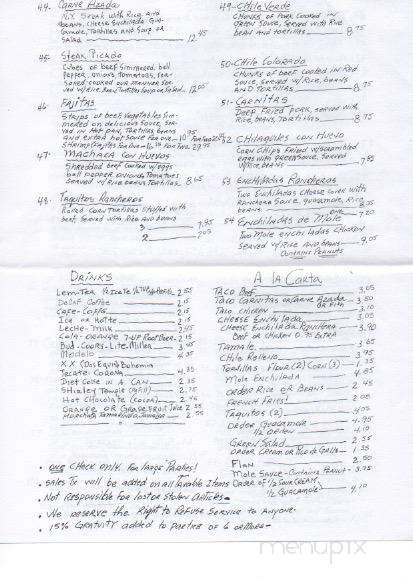 44- Carne Asada
N.Y. Steak with Rice and
Beans, Cheese Enchilada Gua-
camole, Tortillas and Soup or
Salad 12.45
45- Steak Picado
Cubes of beef simmered, bell
pepper, onions, tomatoes,
12.00
46- Fajitas
Strips of beef vegetables sim-
mered on delicious sauce, ser-
ved in hot pan, tortillas, beans
and extra hot sauce for one
47- Machaca con Huevos
Shredded beef cooked w/eggs
bell pepper onions tomatoes
served w/rice beans tortillas 8.65
48- Taquitos Rancheros
Rolled corn tortillas stuffed with
beef, served with rice and beans
3 7.95
2
49- Chile Verde
Chunks of pork cooked in
green sauce, served with rice
beans and tortillas 8.75
50- Chile Colorado
Chunks of beef cooked in red
sauce, served w/rice, beans
and tortillas 8.75
51- Carnitas
Beef fried pork, served with
rice, beans, tortillas 8.75
52 Chilaquiles con Huevo
Corn chips fried w/scrambled
eggs with green sauce, served
w/rice, beans 7.85
53 Enchiladas Rancheras
Two enchiladas cheese, corn with
ranchera sauce, guacamole, rice
beans
54 Enchiladas de Mole
Two mole enchiladas chicken
served w/rice and beans 9.05
Contains Peanuts
Drinks
Decaf Coffee 2.15
Cafe - Coffee 2.15
Ice or Hot Tea 2.15
Leche - Milk
Cola - Orange 7-Up Root Beer 2.15
Bud. Coors - Lite. Miller 3.65
Modelo 4.35
XX (Dos Equis) Bohemia
Tecate. Corona 4.35
Diet Coke in a can 2.35
Shirley Temple
Hot Chocolate (cocoa)
Orange or Grapefruit Juice 2.55
Horchata Tamarindo Jamaica 2.55
A la Carta
Taco Beef 3.05
Taco Carnitas or Carne Asada 3.50
or Fish
Taco Chicken 3.10
Cheese Enchilada 3.05
Cheese Enchilada Ranchera 3.90
Beef or Chicken 0.75 extra
Tamale 3.65
Chile Relleno 3.95
Tortillas Flour (2) Corn (3) 1.35
Mole Enchilada 4.85
Order Rice or Beans 2.45
French Fries 2.05
Taquitos (2) 4.05
Order Guacamole 4.95
1/2 order 4.10
Green Salad 2.55
Order Cream or Pico de Gallo 1.35
Flan 2.50
Mole Sauce - Contains Peanut - 3.75
Order of 1/2 Sour Cream,
1/2 Guacamole 4.10
• One check only. For large Parties!
• Sales Tx will be added on all taxable Items
• Not Responsible for lost or stolen Articles.
• We reserve the Right to Refuse Service to Anyone.
• 15% Gratuity added to parties of 6 or more.
menupix